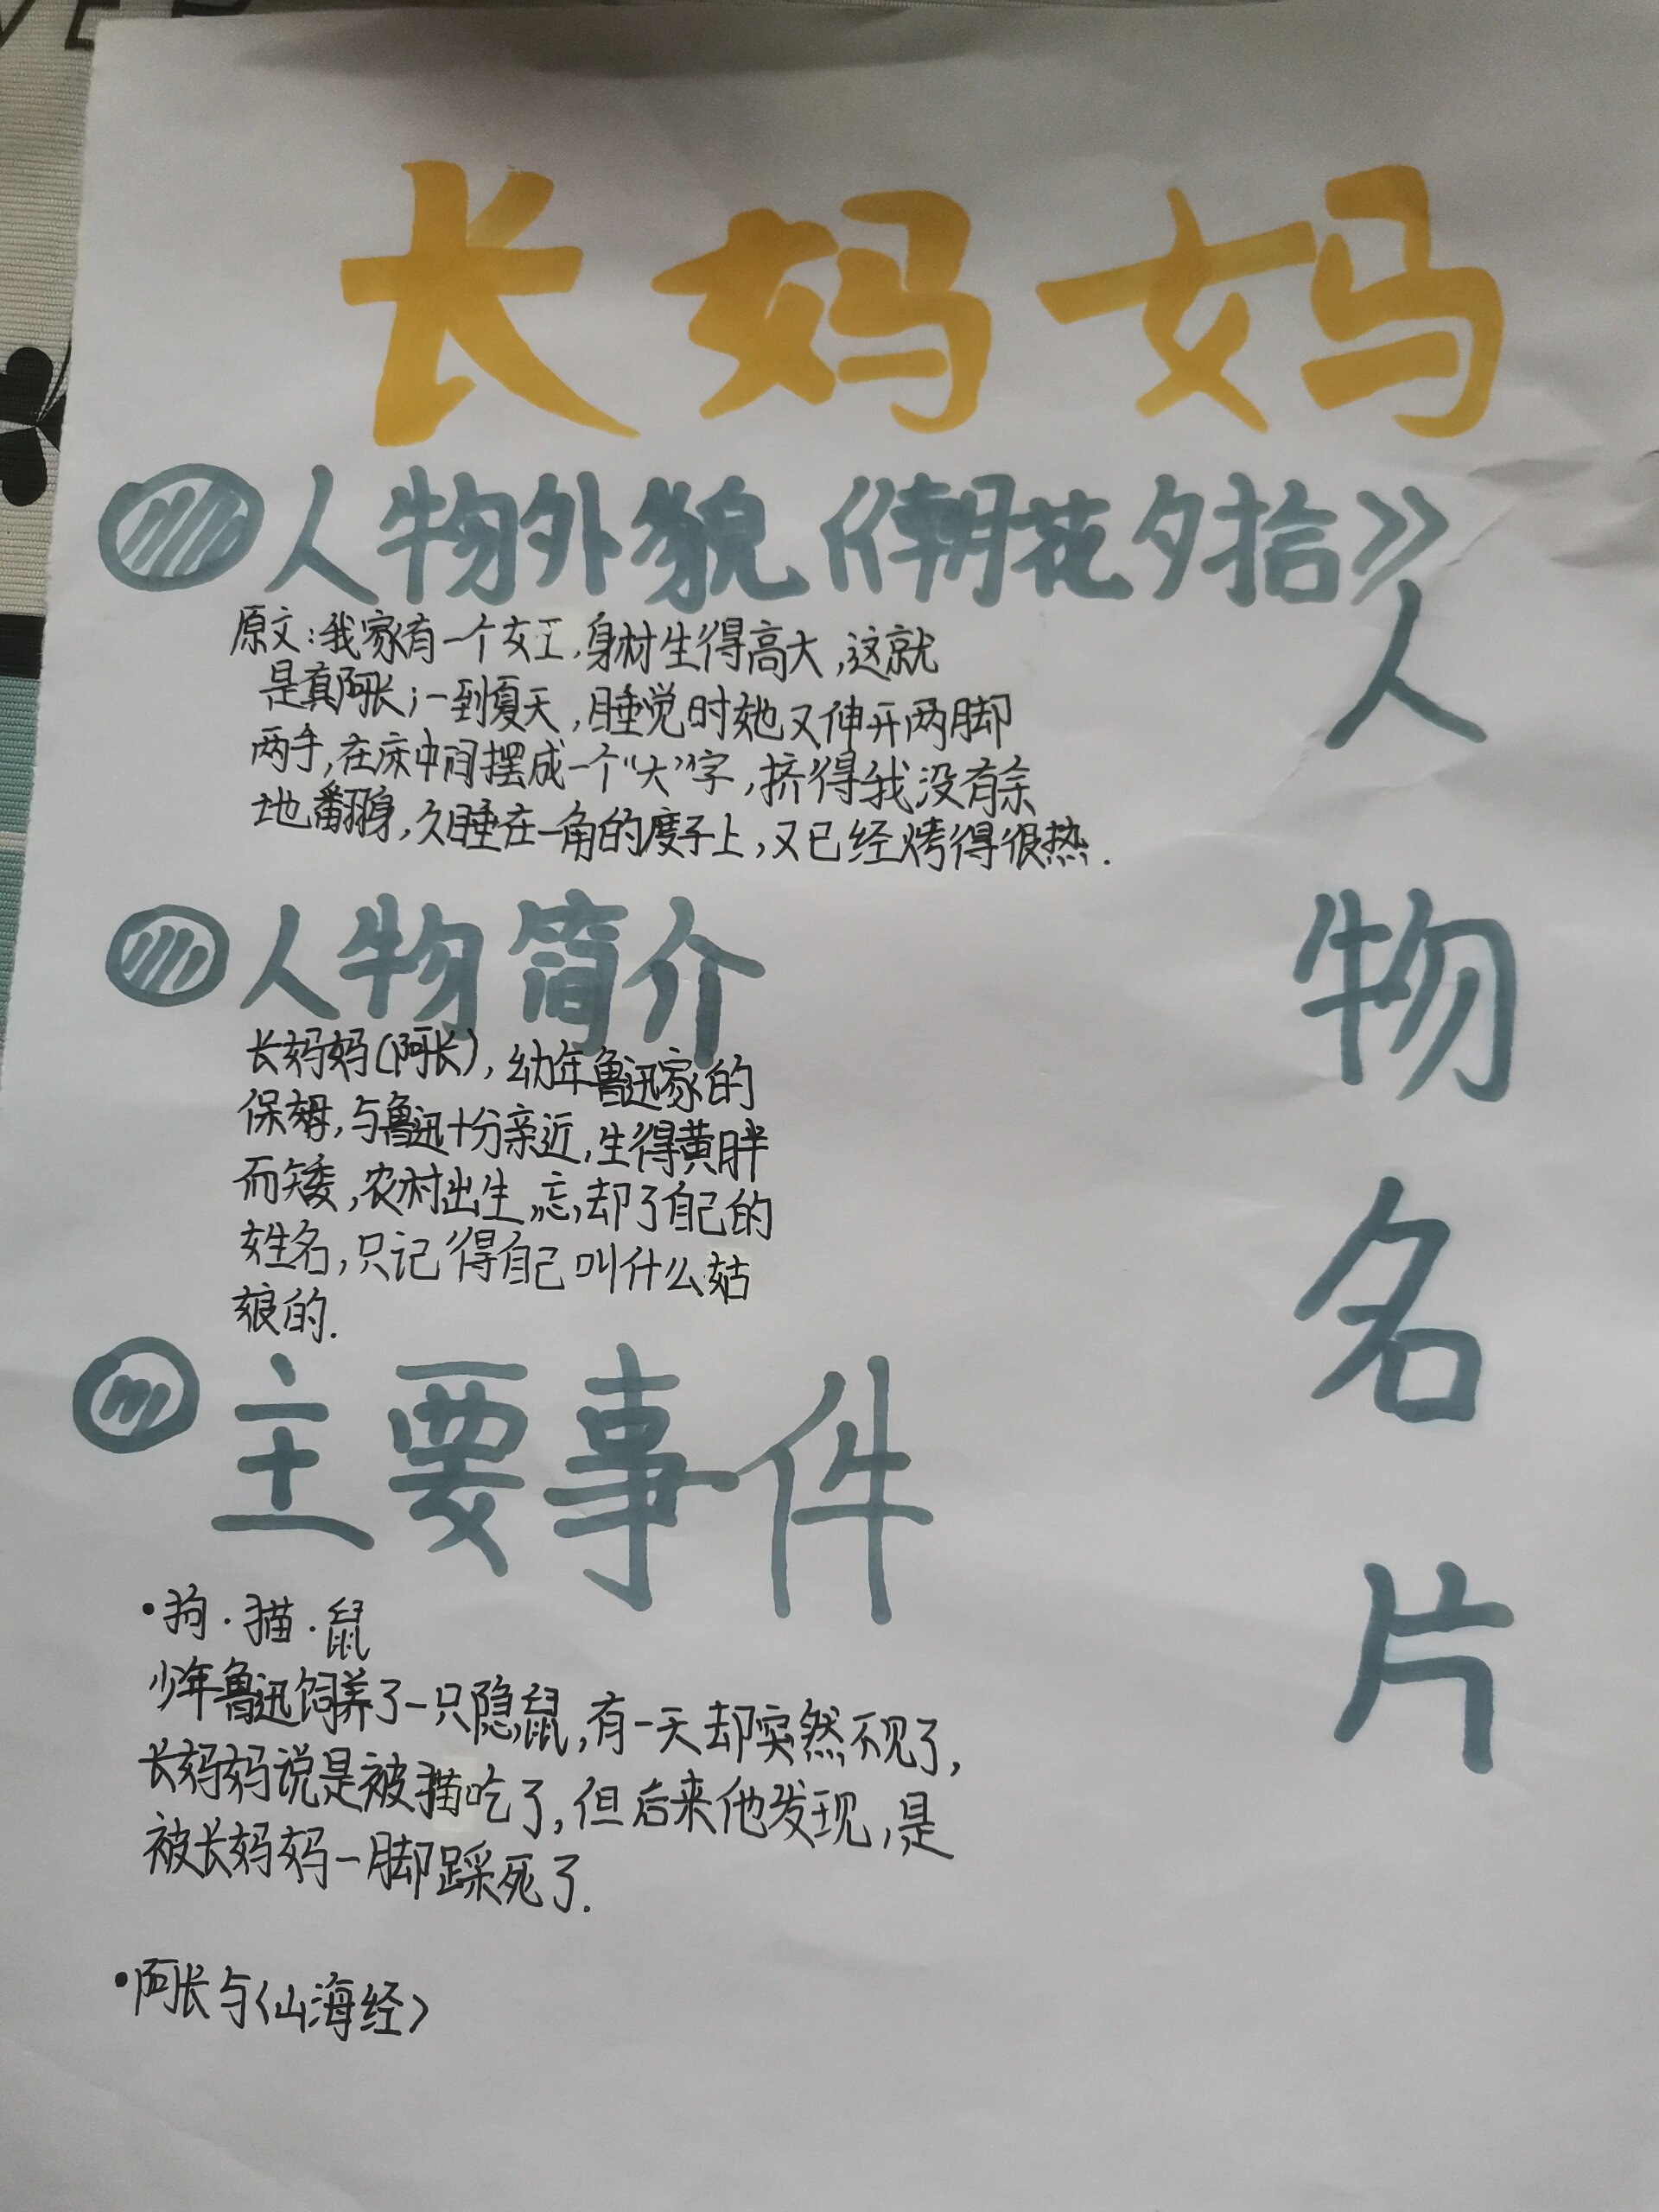 长妈妈
人物外貌《朝花夕拾》
原文:我家有一个女工,身材生得高大,这就
是真阿长;一到夏天,睡觉时她又伸开两脚
两手,在床中间摆成一个“大”字,挤得我没有余
地翻身,久睡在一角的席子上,又已经烤得很热.
人物简介
长妈妈(阿长),幼年鲁迅家的
保姆,与鲁迅十分亲近,生得黄胖
而矮,农村出生,忘却了自己的
姓名,只记得自己叫什么姑
娘的.
主要事件
•狗·猫·鼠
少年鲁迅饲养了一只隐鼠,有一天却突然不见了,
长妈妈说是被猫吃了,但后来他发现,是
被长妈妈一脚踩死了.
•阿长与〈山海经〉
人物名片